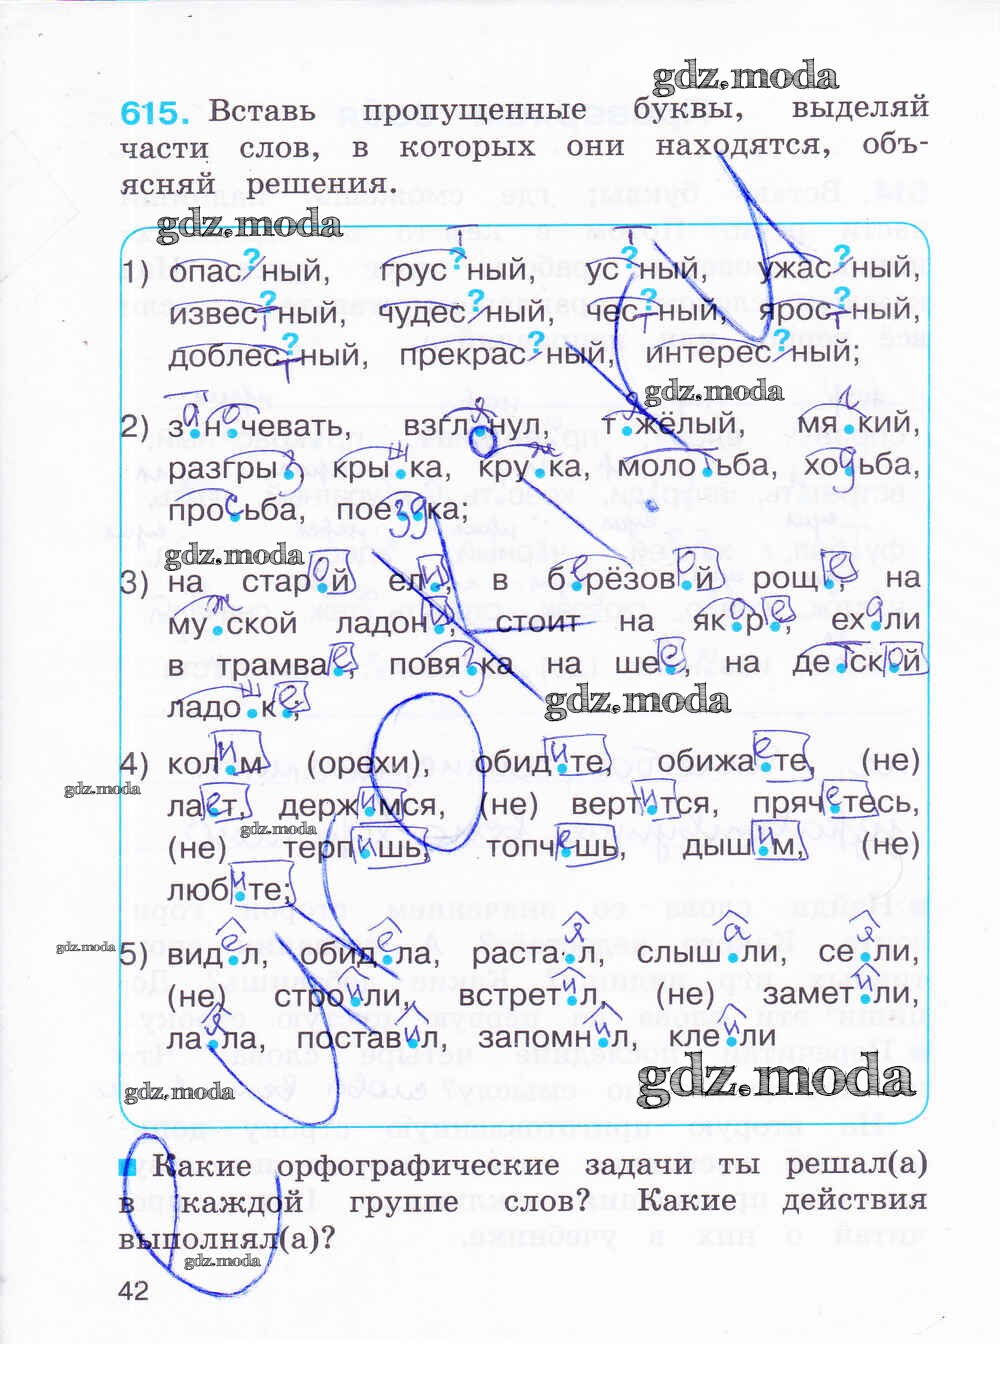 gdz.moda
615. Вставь пропущенные буквы, выделяй
части слов, в которых они находятся, объ-
ясняй решения.
gdz.moda
1) опас?ный, прус?ный, ус?ный, ужас?ный,
извес?ный, чудес?ный, чес?ный, ярос?ный,
доблес?ный, прекрас?ный, интерес?ный;
gdz.moda
2) заночевать, взглянул, тяжёлый, мягкий,
разгрызз, крышка, кружка, молотьба, ходьба,
просьба, поездка;
gdz.moda
3) на старой ели, в берёзовой роще, на
мужской ладони, стоит на якоре, ехали
в трамвае, повязка на шее, на детской
ладошке;
gdz.moda
4) колим (орехи), обидите, обижаете, (не)
gdz.moda
лает, держимся, (не) вертится, прячетесь,
gdz.moda
(не) терпишь, топчешь, дышим, (не)
любите;
gdz.moda
5) видел, обидела, растаял, слышали, сеяли,
(не) строили, встретил, (не) заметили,
лаяла, поставил, запомнил, клеили
gdz.moda
gdz.moda
Какие орфографические задачи ты решал(а)
в каждой группе слов? Какие действия
выполнял(а)?
gdz.moda
42